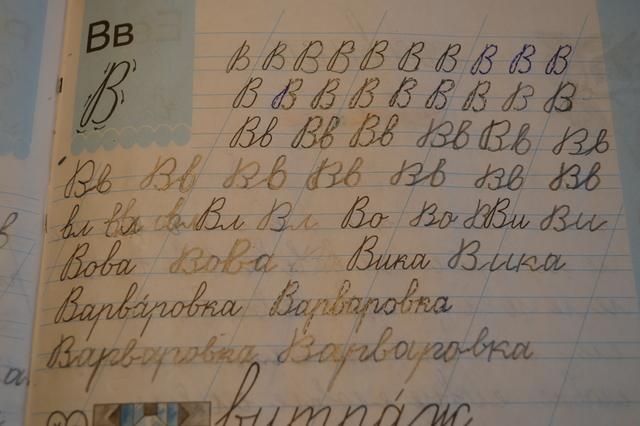 Вв
В
В В В В В В В В В В
В В В В В В В В В
Вв Вв Вв Вв Вв Вв
Вв Вв Вв Вв Вв Вв Вв
вл вл вл Вл Вл Во Во Ви Ви
Вова Вова Вика Вика
Варва́ровка Варваровка
Варваровка Варваровка
витра́ж